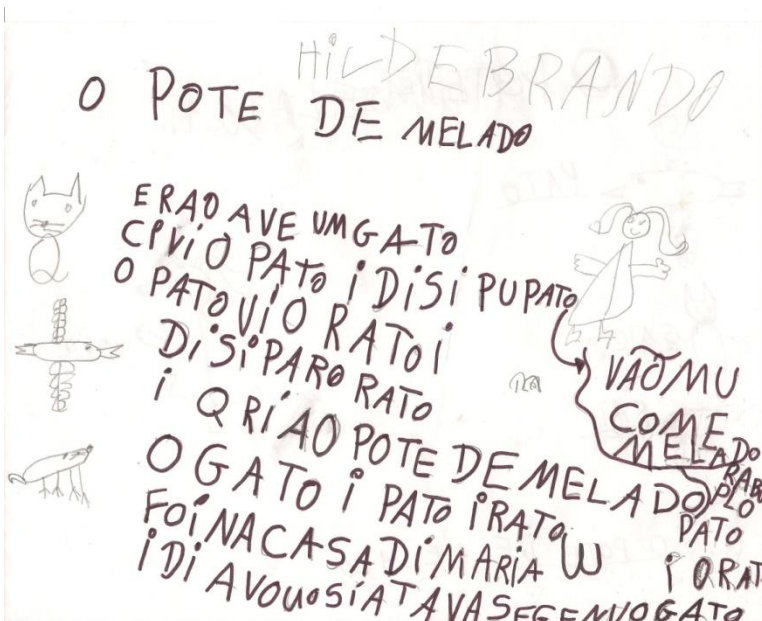 HILDEBRANDO
O POTE DE MELADO
ERAO AVE UM GATO
CPVIO PATO I DISI PUPATO
O PATO VIO RATO I
DISIPARO RATO
I QRIAO POTE DE MELADO
VÃOMU
COME
MELADO
O GATO I PATO IRATO
FOI NA CASA DI MARIA
I DI AVOUOSIATAVASEGENVOGATO
PLO
PATO
I ORAT